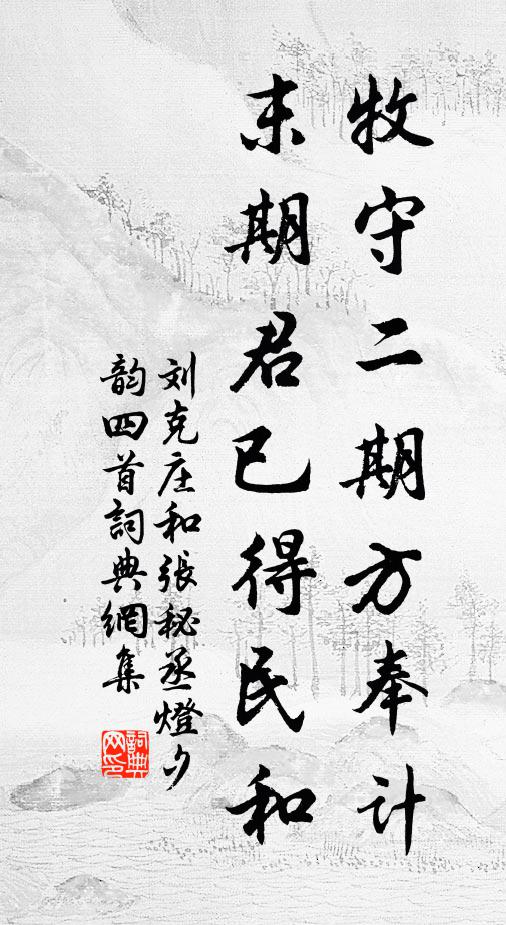 牧守二期方奉计
末期君已得民和
刘克庄和張秘丞燈夕
韵四首詞典網集
詞典网印